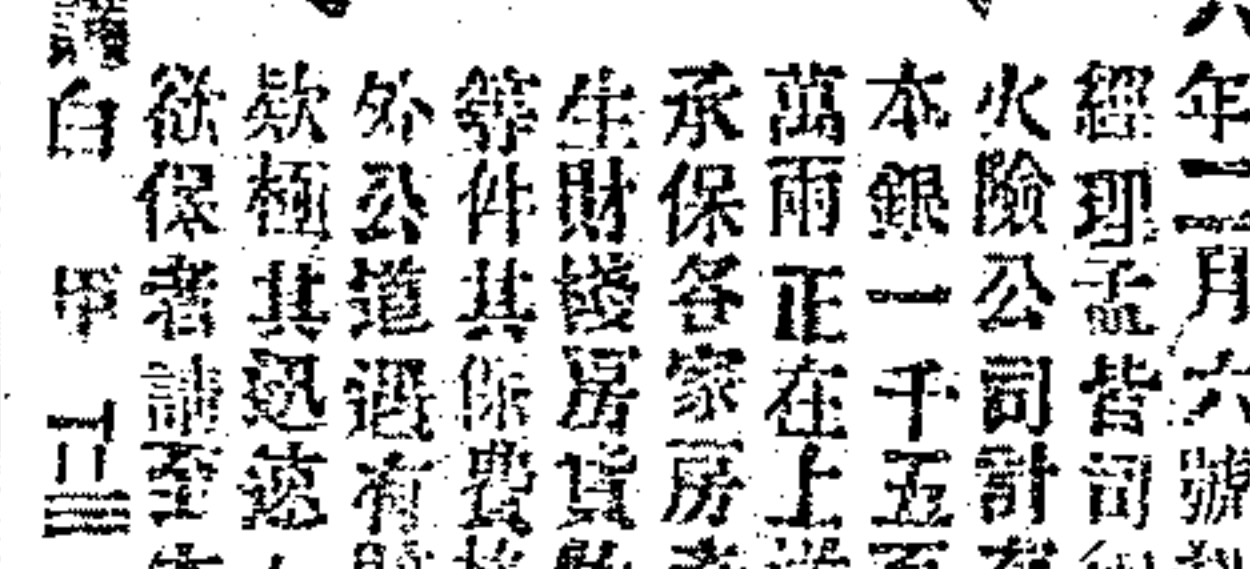 年二月六號
經理 皆司
火險公司計
本銀一千五百
萬兩正在上
承保各家房
生財棧房貨
等件其保費
外公道遇有賠
欵極其迅速
欲保者請至
白 甲 二